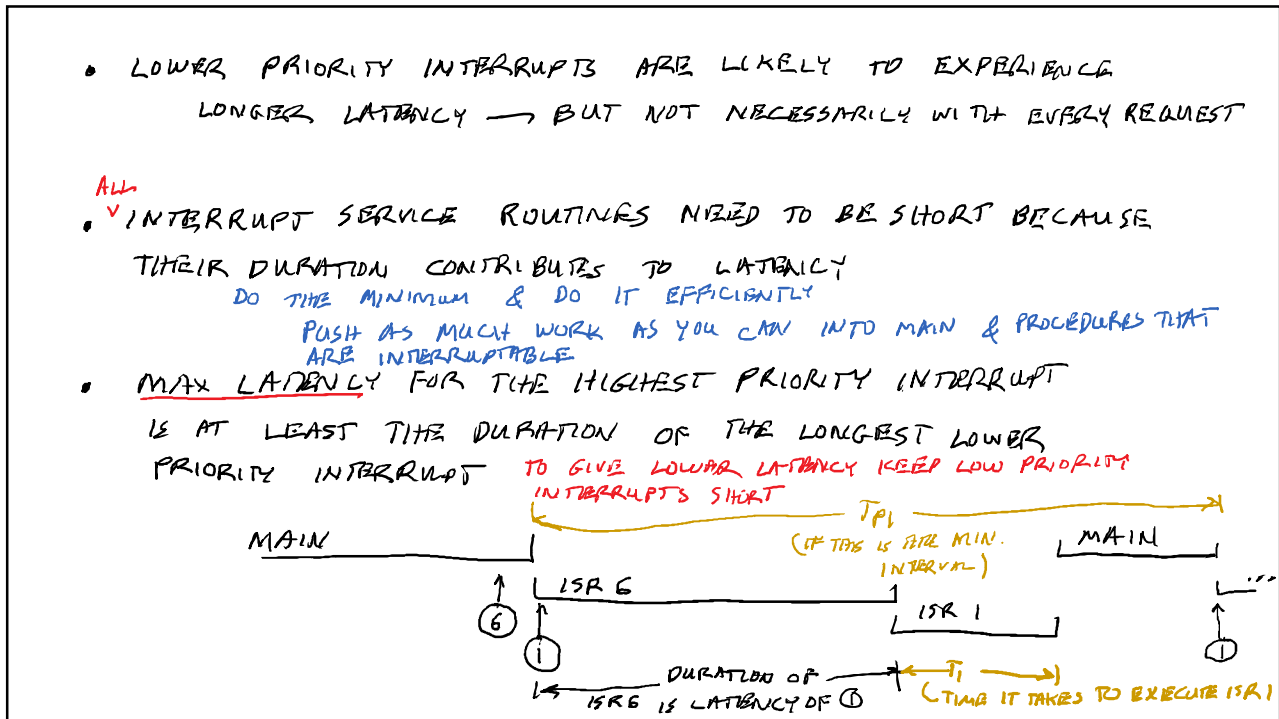 • LOWER PRIORITY INTERRUPTS ARE LIKELY TO EXPERIENCE
LONGER LATENCY — BUT NOT NECESSARILY WITH EVERY REQUEST
ALL
• INTERRUPT SERVICE ROUTINES NEED TO BE SHORT BECAUSE
THEIR DURATION CONTRIBUTES TO LATENCY
DO THE MINIMUM & DO IT EFFICIENTLY
PUSH AS MUCH WORK AS YOU CAN INTO MAIN & PROCEDURES THAT
ARE INTERRUPTABLE
• MAX LATENCY FOR THE HIGHEST PRIORITY INTERRUPT
IS AT LEAST THE DURATION OF THE LONGEST LOWER
PRIORITY INTERRUPT TO GIVE LOWER LATENCY KEEP LOW PRIORITY
INTERRUPTS SHORT
TP1
MAIN (IF THIS IS THE MIN. MAIN
INTERVAL)
ISR 6 ...
ISR 1
6
1 1
DURATION OF T1
ISR6 IS LATENCY OF 1 (TIME IT TAKES TO EXECUTE ISR 1